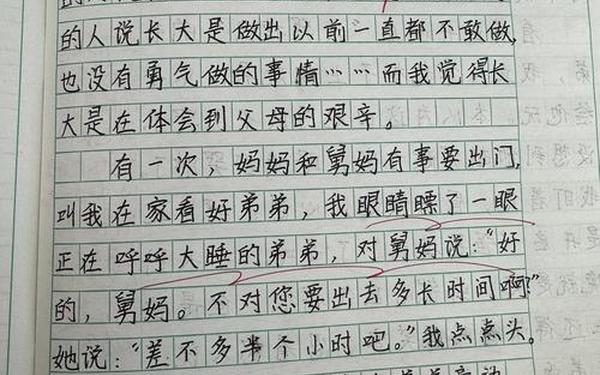 的人说长大是做出以前一直都不敢做,
也没有勇气做的事情……而我觉得长
大是在体会到父母的艰辛。
有一次，妈妈和舅妈有事要出门,
叫我在家看好弟弟，我眼睛瞟了一眼
正在呼呼大睡的弟弟，对舅妈说："好
的，舅妈。不对您要出去多长时间啊?"
她说："差不多半个小时吧。"我点点头。